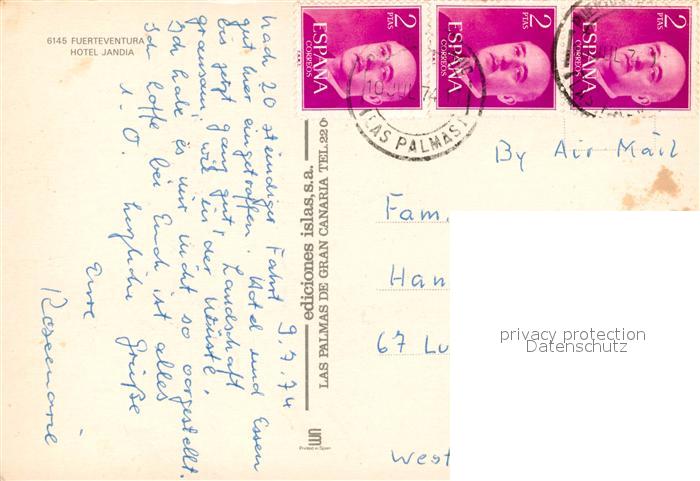 6145 FUERTEVENTURA
HOTEL JANDIA
9.7.74
nach 20 stündiger Fahrt
gut hier eingetroffen. Hotel und Essen
bis jetzt ganz gut. Landschaft
grausam, wie in der Wüste.
Ich habe es mir nicht so vorgestellt.
Ich hoffe bei Euch ist alles
i. O. herzliche Grüße
Eure
Rosemarie
ediciones islas, s.a.
LAS PALMAS DE GRAN CANARIA TEL. 220
Printed in Spain
2 PTAS
ESPAÑA
CORREOS
2 PTAS
ESPAÑA
CORREOS
2 PTAS
ESPAÑA
CORREOS
10 JUL 74
(LAS PALMAS)
By Air Mail
Fam.
Han
67 Lu
West
privacy protection
Datenschutz